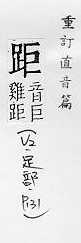 重訂直音篇
距
音巨
雞距
(V2·足部·P31)